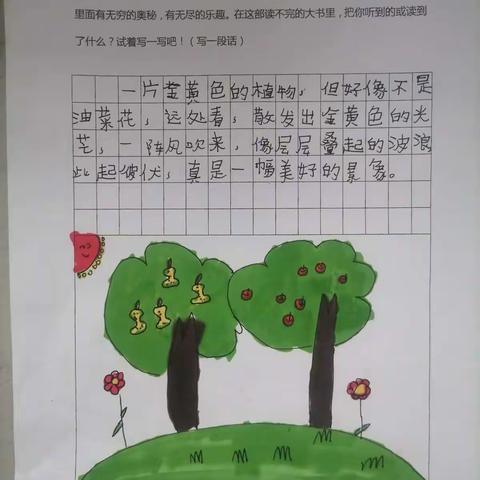 里面有无穷的奥秘，有无尽的乐趣。在这部读不完的大书里，把你听到的或读到
了什么？试着写一写吧！（写一段话）
一片金黄色的植物，但好像不是
油菜花，远处看，散发出金黄色的光
芒，一阵风吹来，像层层叠起的波浪
此起彼伏，真是一幅美好的景象。